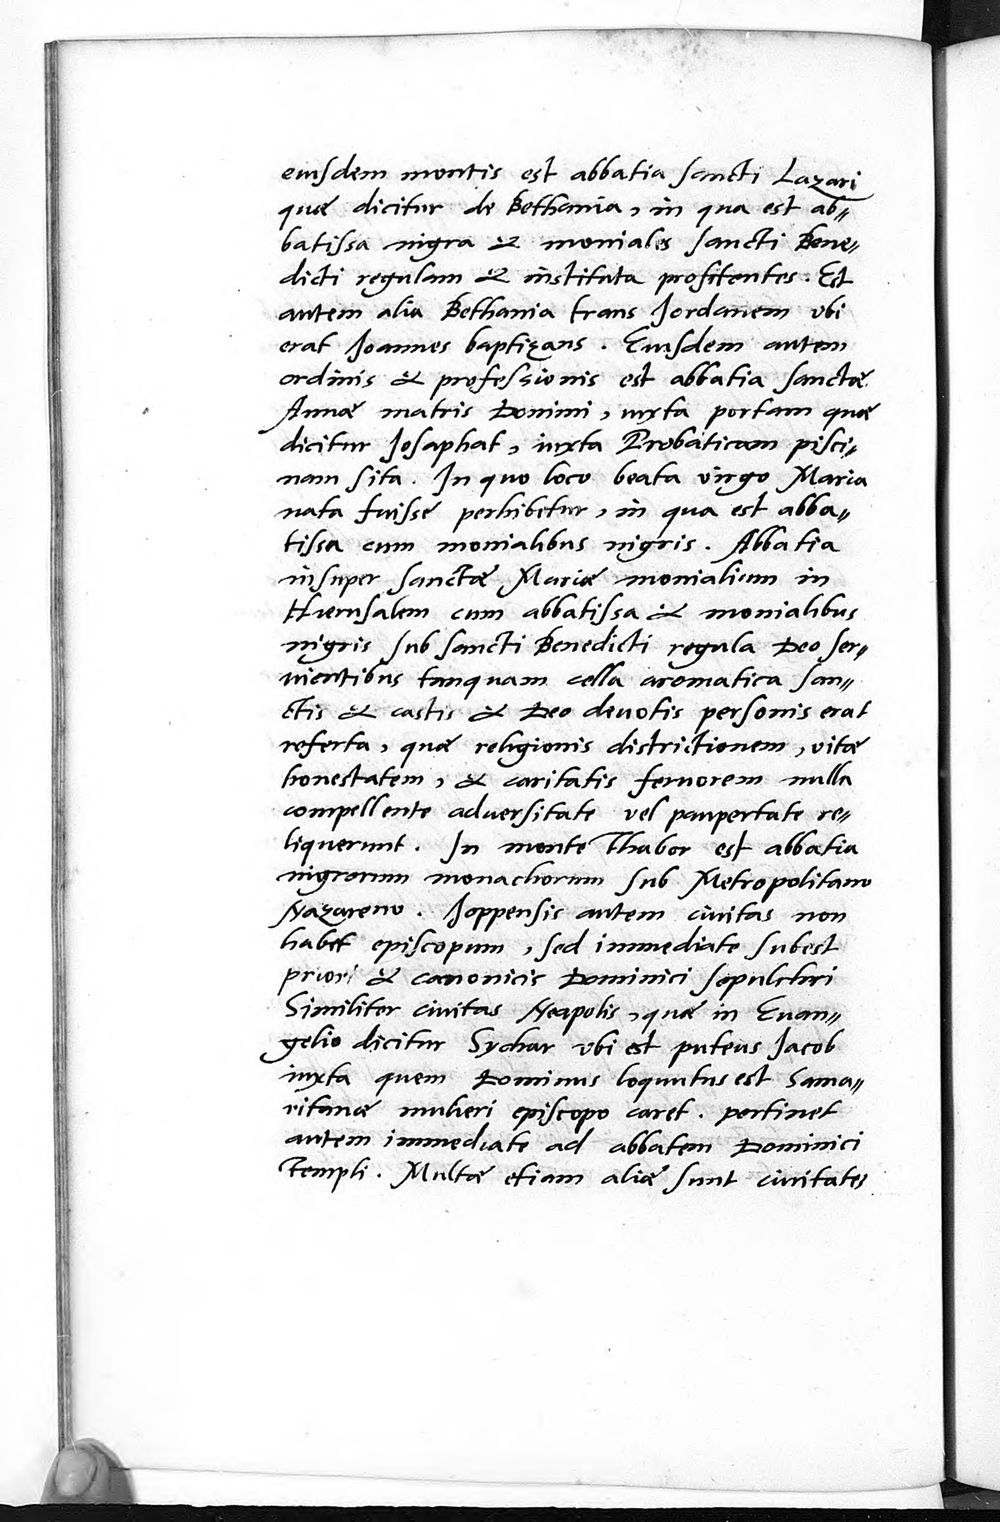 eiusdem montis est abbatia sancti Lazari
quæ dicitur de Bethania, in qua est ab„
batissa nigra & moniales sancti Bene„
dicti regulam & instituta profitentes. Est
autem alia Bethania trans Jordanem vbi
erat Joannes baptizans. Eiusdem autem
ordinis & professionis est abbatia sanctæ
Annæ matris Domini, iuxta portam quæ
dicitur Josaphat, iuxta Probaticam pisci„
nam sita. In quo loco beata virgo Maria
nata fuisse perhibetur, in qua est abba„
tissa cum monialibus nigris. Abbatia
insuper sanctæ Mariæ monialium in
Hierusalem cum abbatissa & monialibus
nigris sub sancti Benedicti regula Deo ser„
uientibus tanquam cella aromatica san„
ctis & castis & Deo deuotis personis erat
referta, quæ religionis districtionem, vitæ
honestatem, & caritatis feruorem nulla
compellente aduersitate vel paupertate re„
liquerunt. In monte Thabor est abbatia
nigrorum monachorum sub Metropolitano
Nazareno. Joppensis autem ciuitas non
habet episcopum, sed immediate subest
priori & canonicis Dominici sepulchri
Similiter ciuitas Neapolis, quæ in Euan„
gelio dicitur Sychar vbi est puteus Jacob
iuxta quem Dominus loquutus est Sama„
ritanæ mulieri episcopo caret. pertinet
autem immediate ad abbatem Dominici
Templi. Multæ etiam aliæ sunt ciuitates